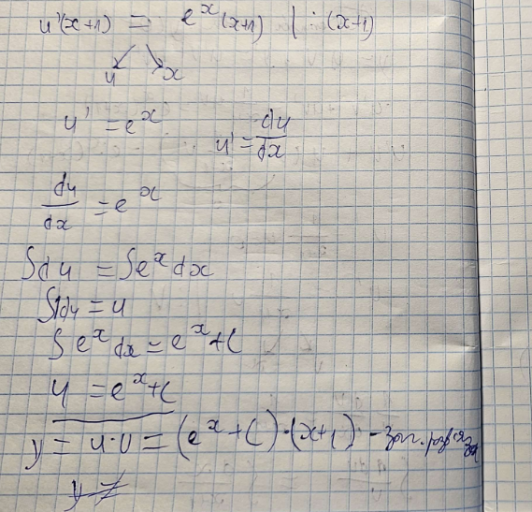 u'(x+1) = e^x(x+1) | : (x+1)
u x
u' = e^x
u' = du/dx
du/dx = e^x
∫du = ∫e^x dx
∫1du = u
∫e^x dx = e^x + C
u = e^x + C
y = u·v = (e^x + C)·(x+1) - заг.
y =